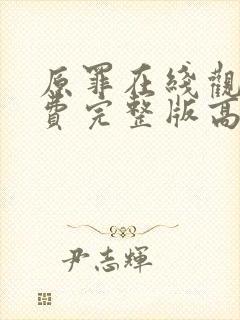 原罪在线觀
费完整版高
尹志輝